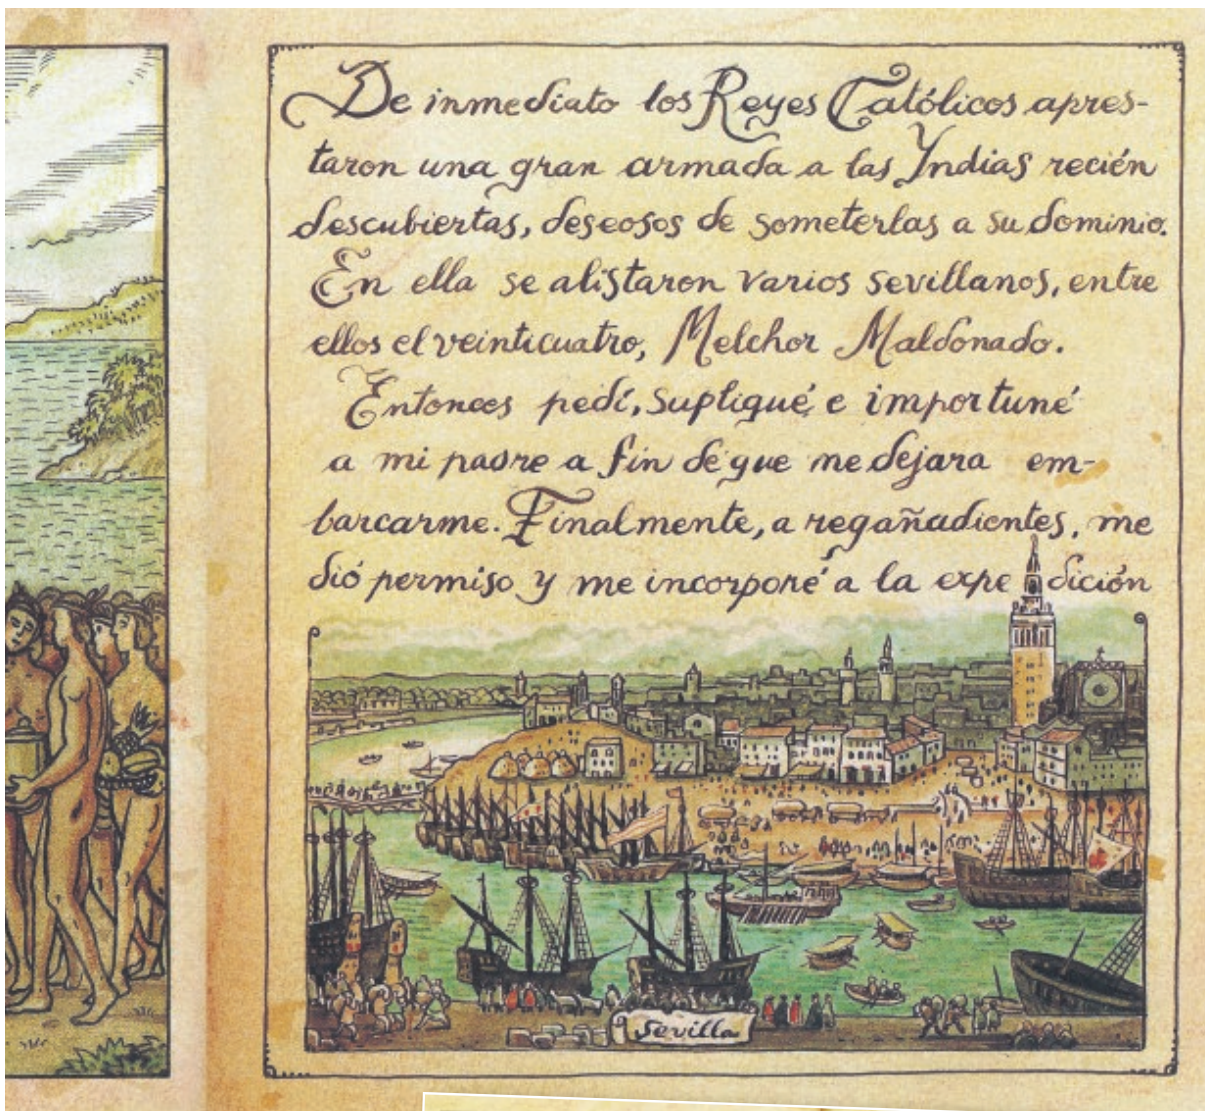 De inmediato los Reyes Católicos apres-
taron una gran armada a las Yndias recién
descubiertas, deseosos de someterlas a su dominio.
En ella se alistaron varios sevillanos, entre
ellos el veinticuatro, Melchor Maldonado.
Entonces pedí, supliqué e importuné
a mi padre a fin de que me dejara em-
barcarme. Finalmente, a regañadientes, me
dió permiso y me incorporé a la expedición
Sevilla